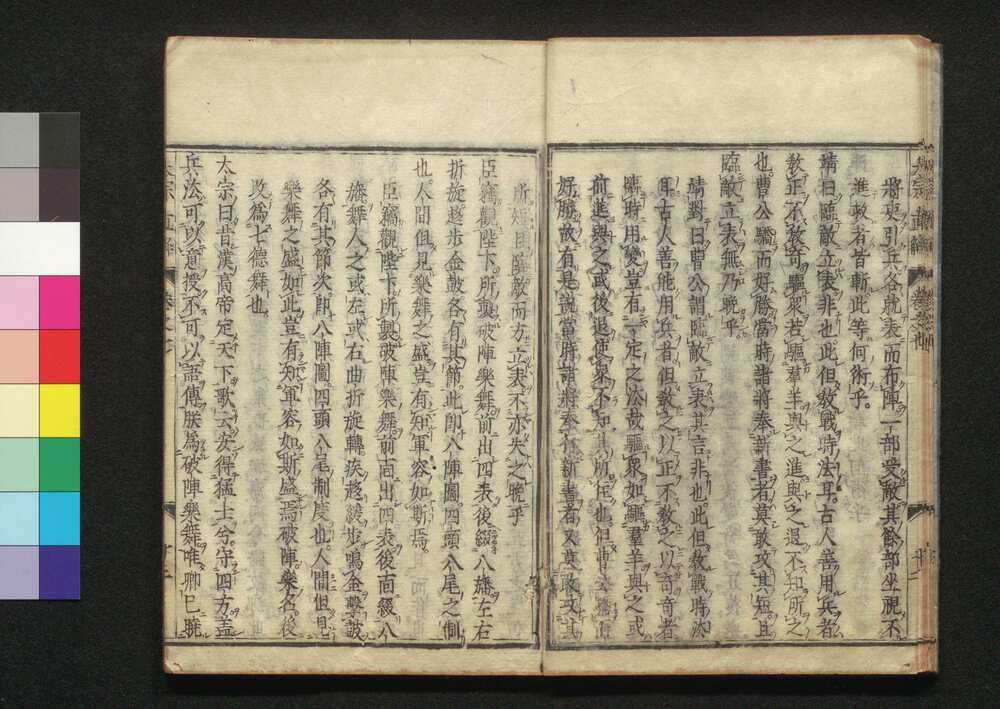 將更引兵各就表而布陣一部受敵其餘部坐視不
進救者皆斬此等何術乎
靖曰臨敵立表非也此但教戰時法耳古人善用兵者
教正不教奇驅衆若驅羣羊與之進與之退不知所之
也曹公驕而好勝當時諸將奉新書者莫敢攻其短且
臨敵立表無乃晚乎
靖對曰曹公謂臨敵立表其言非也此但教戰時法
耳古人善能用兵者但教之以正不教之以奇奇者
臨時用變豈有一定之法哉驅衆如驅羣羊與之或
前進與之或後退使衆不知其所往也但曹公驕而
好勝故有是說當時諸將奉行新書者又莫敢攻其
所短且臨敵而方立表不亦失之晚乎
臣竊觀陛下所製破陣樂舞前出四表後綴八旛左右
折旋趨步金鼓各有其節此即八陣圖四頭八尾之制
也人間但見樂舞之盛豈有知軍容如斯焉
臣竊觀陛下所製破陣樂舞前面出四表後面綴八
旛舞人之或左或右曲折旋轉疾趨緩步鳴金擊鼓
各有其節次即八陣圖四頭八尾制度也人間但見
樂舞之盛如此豈有知軍容如斯盛焉破陣樂名後
改爲七德舞也
太宗曰昔漢高帝定天下歌云安得猛士兮守四方蓋
兵法可以意授不可以語傳朕爲破陣樂舞唯卿已曉